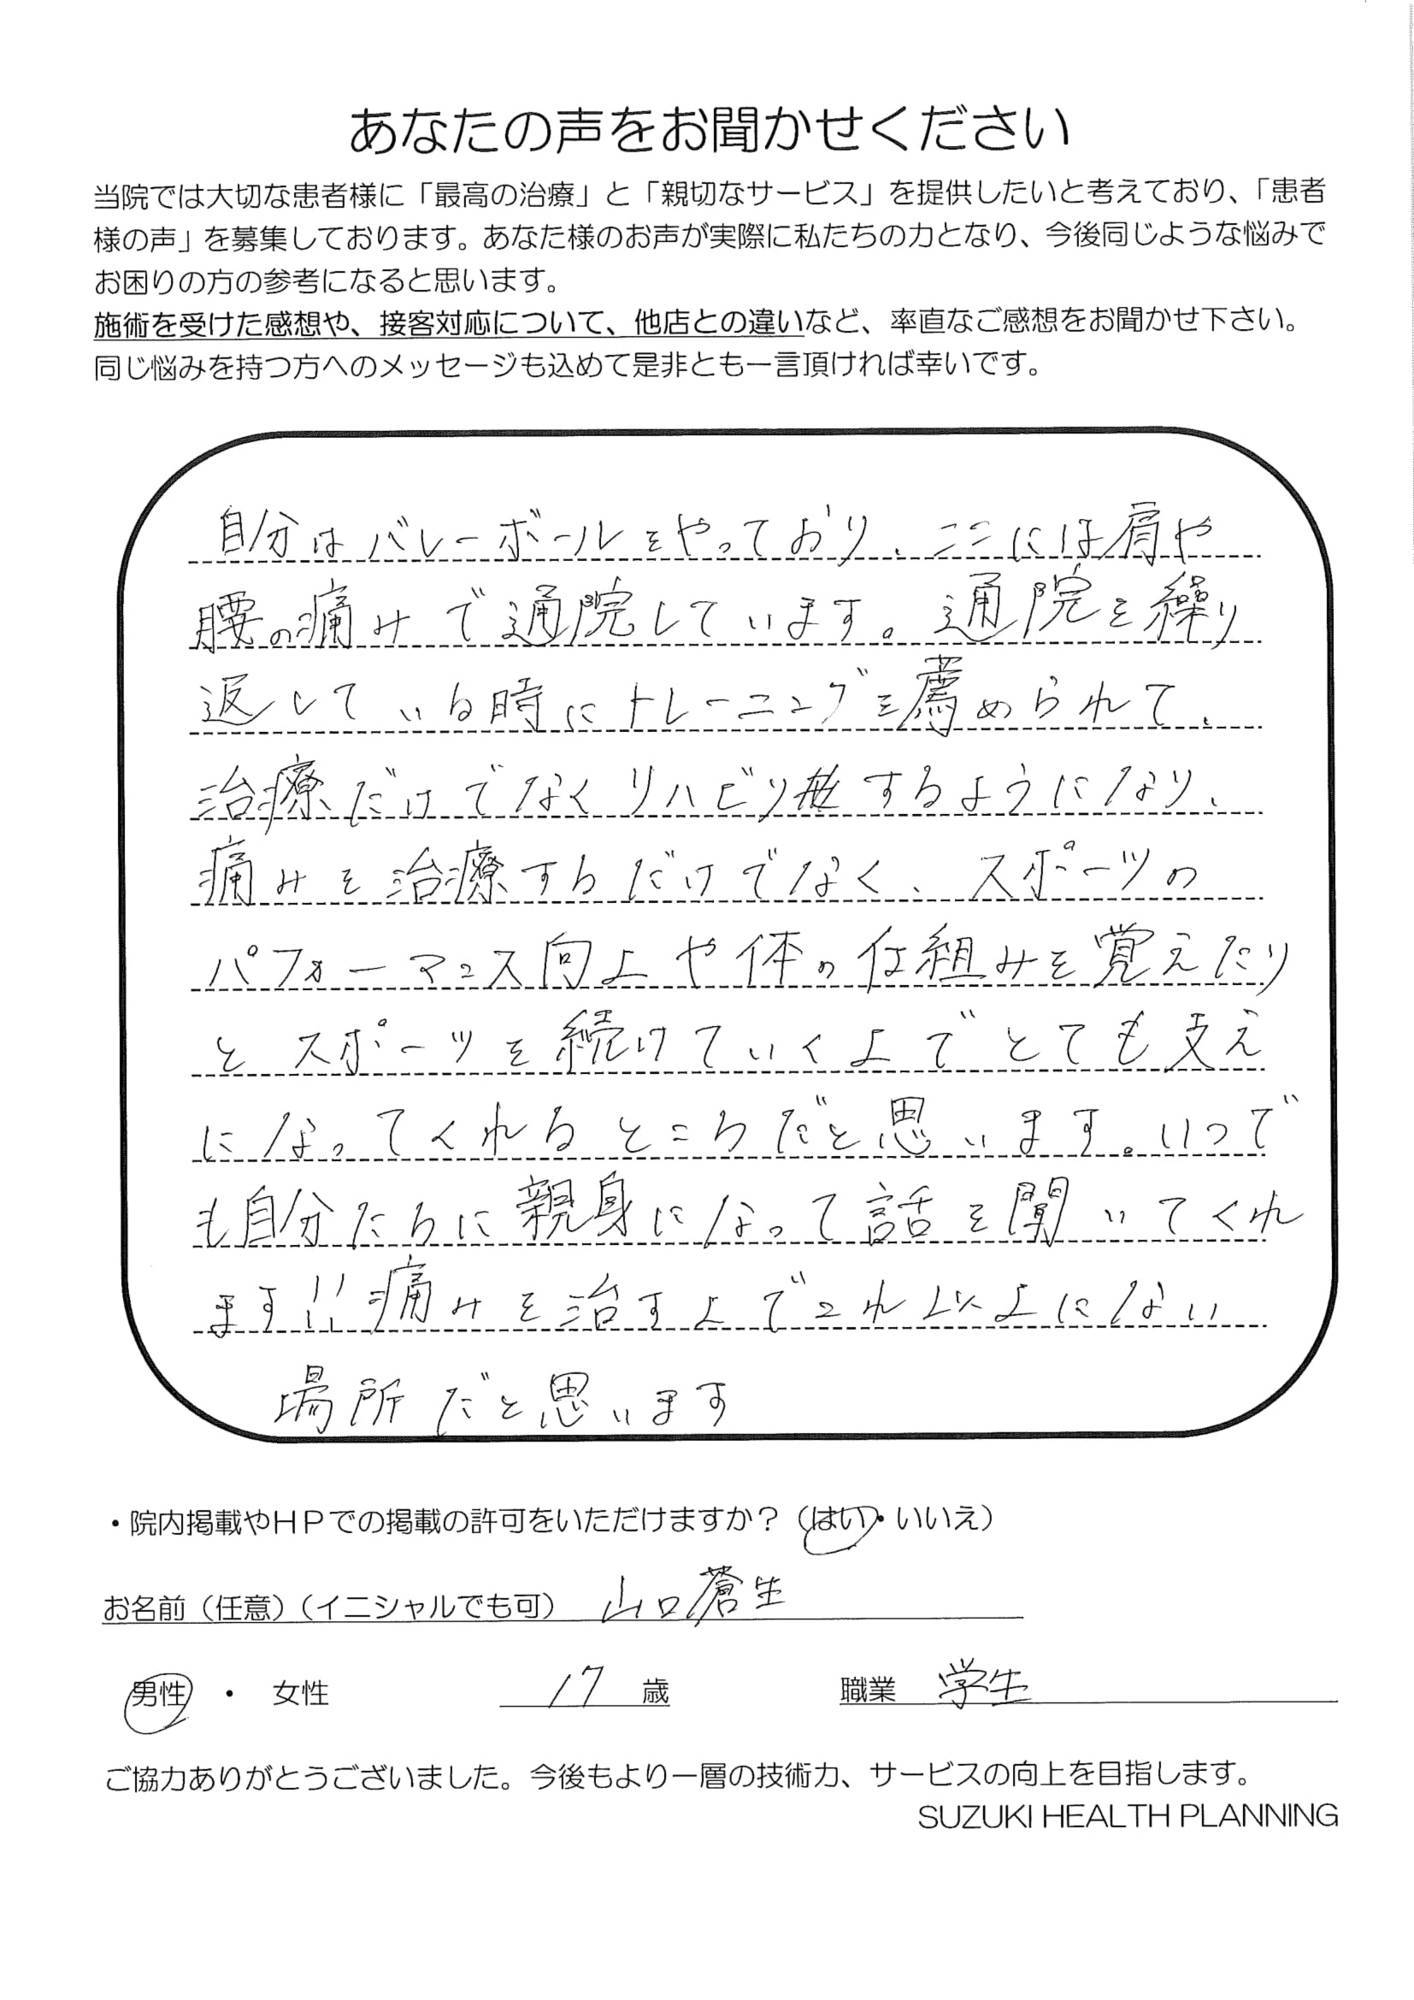 あなたの声をお聞かせください
当院では大切な患者様に「最高の治療」と「親切なサービス」を提供したいと考えており、「患者
様の声」を募集しております。あなた様のお声が実際に私たちの力となり、今後同じような悩みで
お困りの方の参考になると思います。
施術を受けた感想や、接客対応について、他店との違いなど、率直なご感想をお聞かせ下さい。
同じ悩みを持つ方へのメッセージも込めて是非とも一言頂ければ幸いです。
自分はバレーボールをやっており、ここには肩や
腰の痛みで通院しています。通院を繰り
返している時にトレーニングを薦められて、
治療だけでなくリハビリするようになり、
痛みを治療するだけでなく、スポーツの
パフォーマンス向上や体の仕組みを覚えたり
とスポーツを続けていく上でとても支え
になってくれるところだと思います。いつで
も自分たちに親身になって話を聞いてくれ
ます!!痛みを治す上でこれ以上にない
場所だと思います
・院内掲載やHPでの掲載の許可をいただけますか?(はい・いいえ)
お名前(任意)(イニシャルでも可) 山口蒼生
男性 ・ 女性 17 歳 職業 学生
ご協力ありがとうございました。今後もより一層の技術力、サービスの向上を目指します。
SUZUKI HEALTH PLANNING